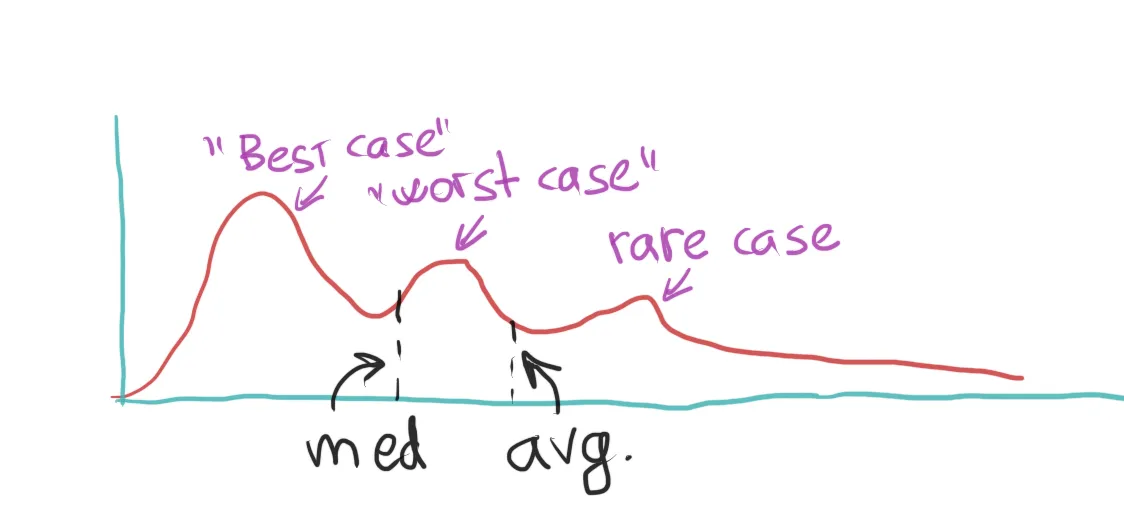 "Best case"
"worst case"
rare case
med
avg.